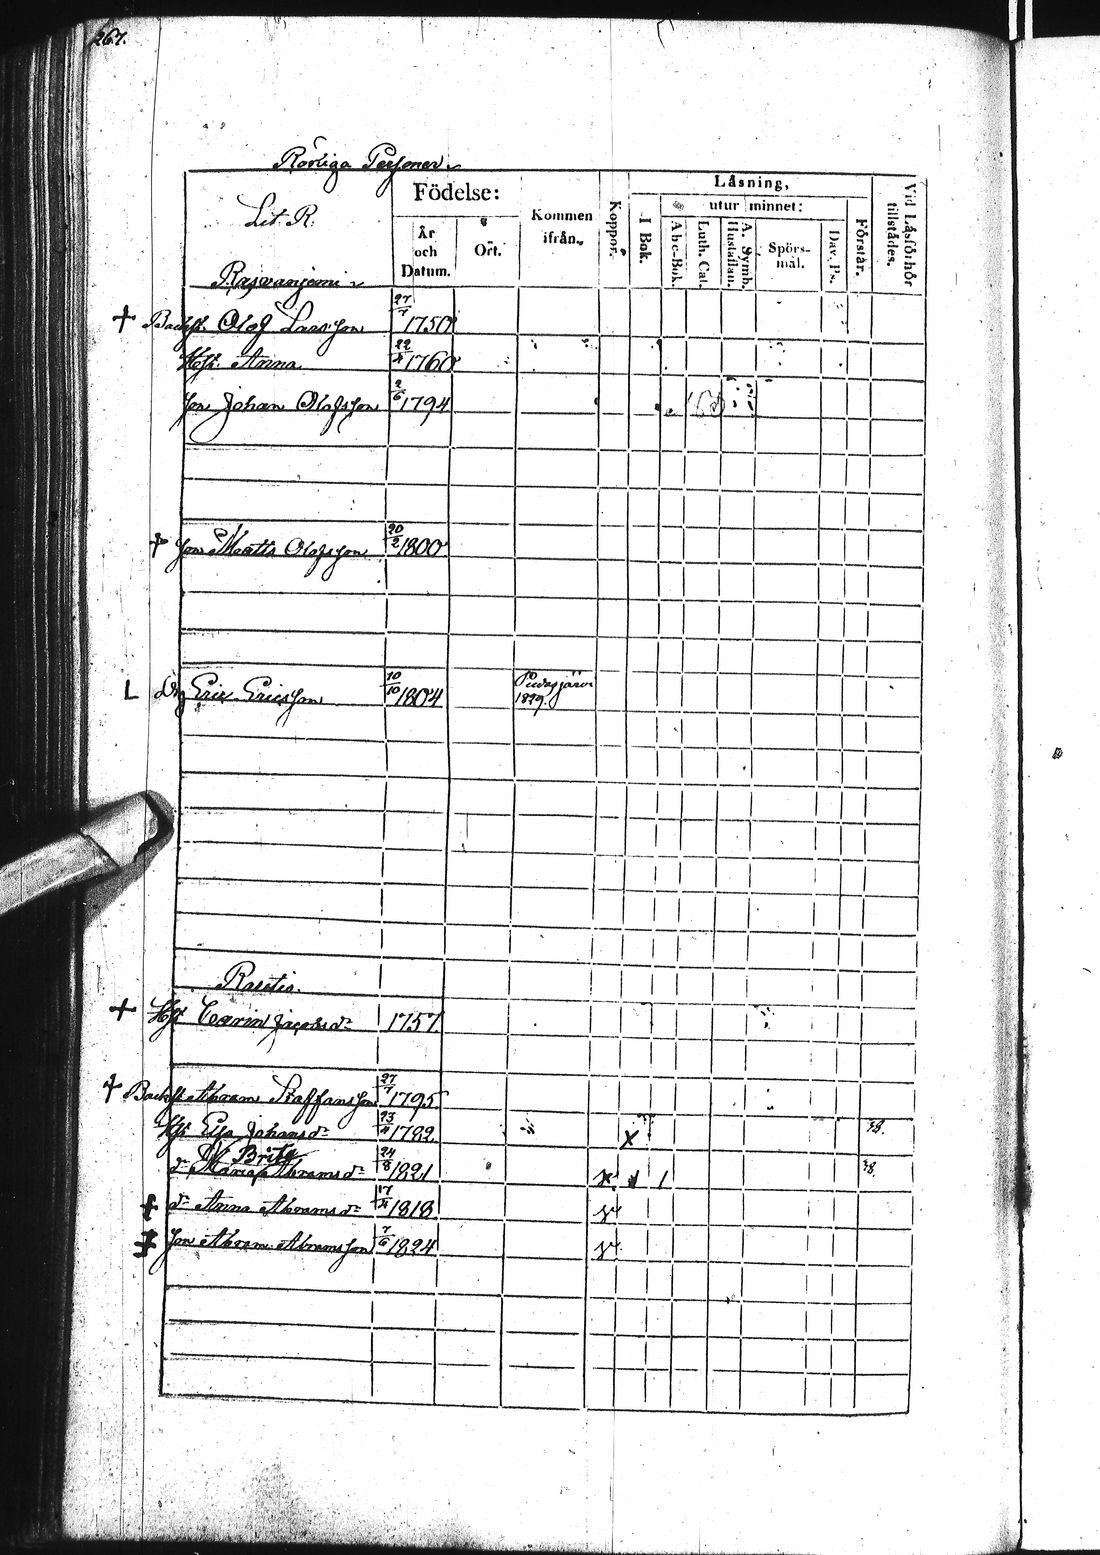 267.
Rörliga Personer
Födelse:
Läsning,
Lit. R.
År och Datum.
Ort.
Kommen ifrån.
Koppor.
I Bok.
utur minnet:
Abc-Bok.
Luth. Cat.
A. Symb. Hustaflan.
Spörsmål.
Dav. Ps.
Förstår.
Vid Läsförhör tillstädes.
+ Backst. Olof Larsson 27/7 1750
Hst. Anna 22/4 1760
Son Johan Olofsson 2/6 1794
+ Son Matts Olofsson 20/2 1800
L Drg Eric Ericsson 10/10 1804 Pudasjärvi 1829.
+ Hst Carin Jacobsdr 1757.
+ Backst Abram Staffansson 27/7 1795.
Hst Elsa Johansdr 23/4 1782. X 38.
Brita
dr Maria Abramsdr 24/8 1821 x 1 1 38.
+ dr Anna Abramsdr 17/4 1818.
+ Son Abram Abramsson 7/6 1824